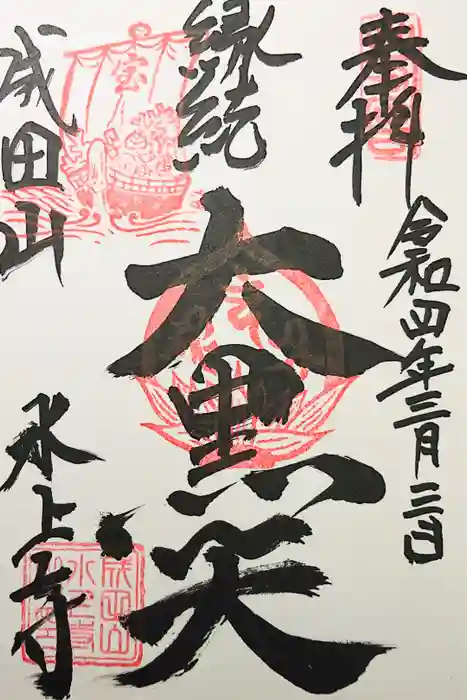 奉拝
令和四年三月三日
縁結
大黒天
成田山
水上寺
宝
成田山
水上寺